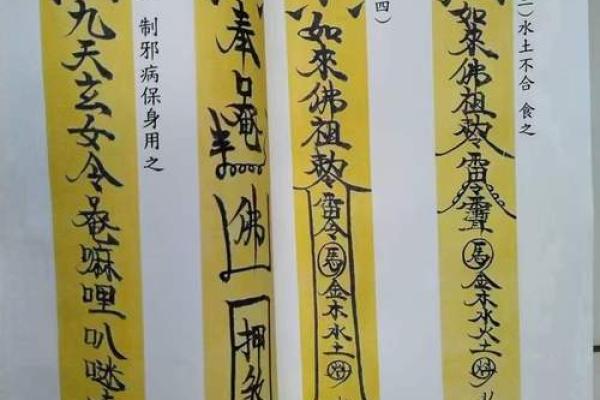 二）水土不合 食之
如來佛祖勅雷令馬金木水火土
四）
如來佛祖勅雷令馬金木水土
奉唵佛押煞
制邪病保身用之
九天玄女令奄嘛哩叭咪